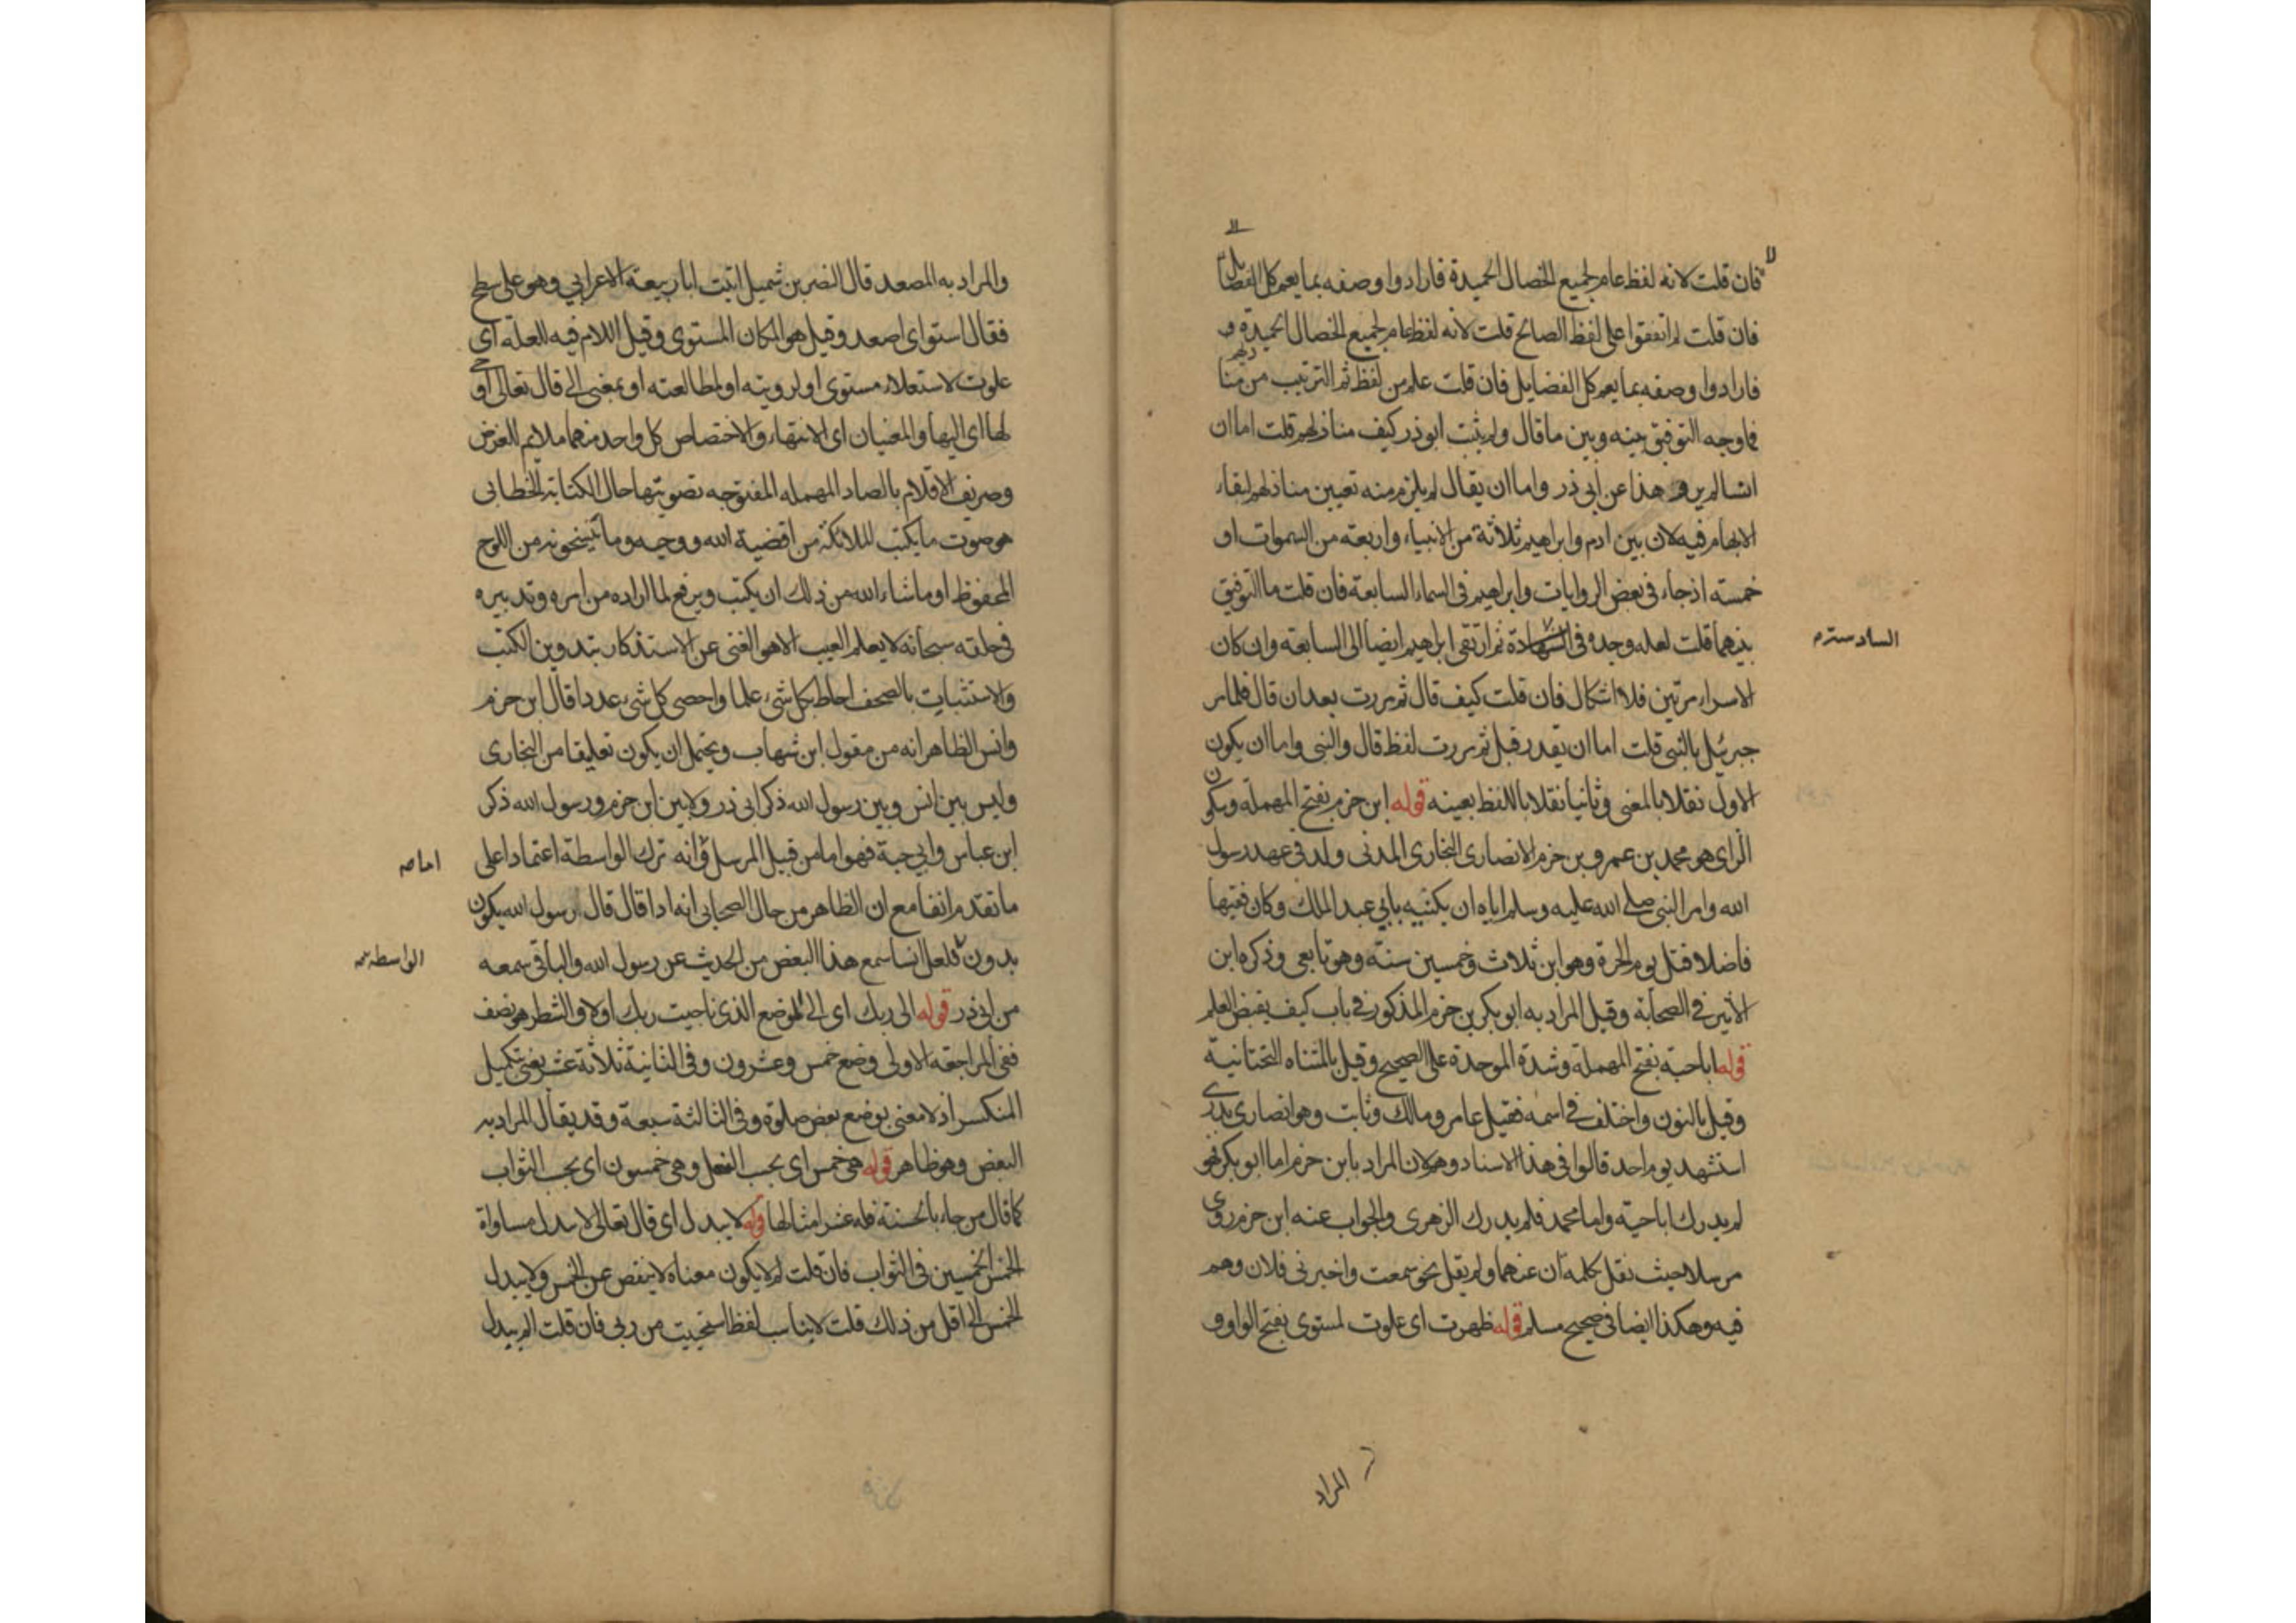 فان قلت لانه لفظ عام لجميع الخصال الحميدة فارادوا وصفه بما يعم كل الفضايل
فان قلت لم اتفقوا على لفظ الصالح قلت لانه لفظ عام لجميع الخصال الحميدة و
فارادوا وصفه بما يعم كل الفضايل فان قلت علم من لفظ ثم الترتيب من منازلهم
فما وجه التوفيق بينه وبين ما قال ولم يثبت ابو ذر كيف منازلهم قلت اما ان
انسا لم يرو هذا عن ابي ذر واما ان يقال لم يلزم منه تعيين منازلهم لبقاء
الابهام فيه لان بين ادم وابراهيم ثلاثة من الانبياء واربعة من السموات او
خمسة اذ جاء في بعض الروايات وابراهيم في السماء السابعة فان قلت ما التوفيق
بينهما قلت لعله وجده في الشهادة ثم ارتقى ابراهيم ايضا الى السابعة وان كان
السادسة م
الاسراء مرتين فلا اشكال فان قلت كيف قال ثم مررت بعد ان قال فلما مر
جبرئيل بالنبي قلت اما ان يقدر قبل ثم مررت لفظ قال والنبي واما ان يكون
الاول نقلا بالمعنى وثانيا نقلا باللفظ بعينه قوله ابن حزم بفتح المهملة وسكون
الراي هو محمد بن عمرو بن حزم الانصاري النجاري المدني ولد في عهد رسول
الله وامر النبي صلى الله عليه وسلم اباه ان يكنيه بابي عبد الملك وكان فقيها
فاضلا قتل يوم الحرة وهو ابن ثلاث وخمسين سنة وهو تابعي وذكره ابن
الاثير في الصحابة وقيل المراد به ابو بكر بن حزم المذكور في باب كيف يقبض العلم
قوله ابا حبة بفتح المهملة وشدة الموحدة على الصحيح وقيل بالمثناه التحتانية
وقيل بالنون واختلف في اسمه فقيل عامر ومالك وثابت وهو انصاري بدري
استشهد يوم احد قالوا في هذا الاسناد وهم لان المراد بابن حزم اما ابو بكر فهو
لم يدرك ابا حية واما محمد فلم يدرك الزهري والجواب عنه ابن حزم روى
مرسلا حيث نقل بكلمة ان عنهما ولم يقل نحو سمعت واخبرني فلان وهم
فيه وهكذا ايضا في صحيح مسلم قوله ظهرت اي علوت لمستوى بفتح الواو و
المراد
والمراد به المصعد قال النضر بن شميل اتيت ابا ربيعة الاعرابي وهو على سطح
فقال استو اي اصعد وقيل هو المكان المستوي وقيل اللام فيه للعلة اي
علوت لاستعلاء مستوى او لرويته او لمطالعته او بمعنى الى قال تعالى اوحى
لها اي اليها والمعنيان اي الانتهاء والاختصاص كل واحد منهما ملايم للغرض
وصريف الاقلام بالصاد المهمله المفتوحه تصويتها حال الكتابة الخطابي
هو صوت ما يكتب الملائكة من اقضية الله ووحيه وما ينسخونه من اللوح
المحفوظ او ما شاء الله من ذلك ان يكتب ويرفع لما اراده من امره وتدبيره
في خلقه سبحانه لا يعلم الغيب الا هو الغني عن الاستذكار بتدوين الكتب
والاستثبات بالصحف احاط بكل شيء علما واحصى كل شيء عددا قال ابن حزم
وانس الظاهر انه من مقول ابن شهاب ويحتمل ان يكون تعليقا من البخاري
وليس بين انس وبين رسول الله ذكر ابي ذر ولا بين ابن حزم ورسول الله ذكر
ابن عباس وابي حبة فهو اما من قبيل المرسل وانه ترك الواسطة اعتمادا على
اما صه
ما تقدم انفا مع ان الظاهر من حال الصحابي انه اذا قال قال رسول الله يكون
بدون فلعل انسا سمع هذا البعض من الحديث عن رسول الله والباقي سمعه
الواسطة صه
من ابي ذر قوله الى ربك اي الى الموضع الذي ناجيت ربك اولا والشطر هو نصف
ففي المراجعه الاولى وضع خمس وعشرون وفي الثانية ثلاثة عشر يعني بتكميل
المنكسر اذ لا معنى بوضع بعض صلوة وفي الثالثة سبعة وقد يقال المراد به
البعض وهو ظاهر قوله هي خمس اي بحسب الفعل وهي خمسون اي بحسب الثواب
كما قال من جاء بالحسنة فله عشر امثالها قوله لا يبدل اي قال تعالى لا يبدل مساواة
الخمس الخمسين في الثواب فان قلت لم لا يكون معناه لا ينقص عن الخمس ولا يبدل
الخمس الى اقل من ذلك قلت لا يناسب لفظ استحييت من ربي فان قلت الم يبدل